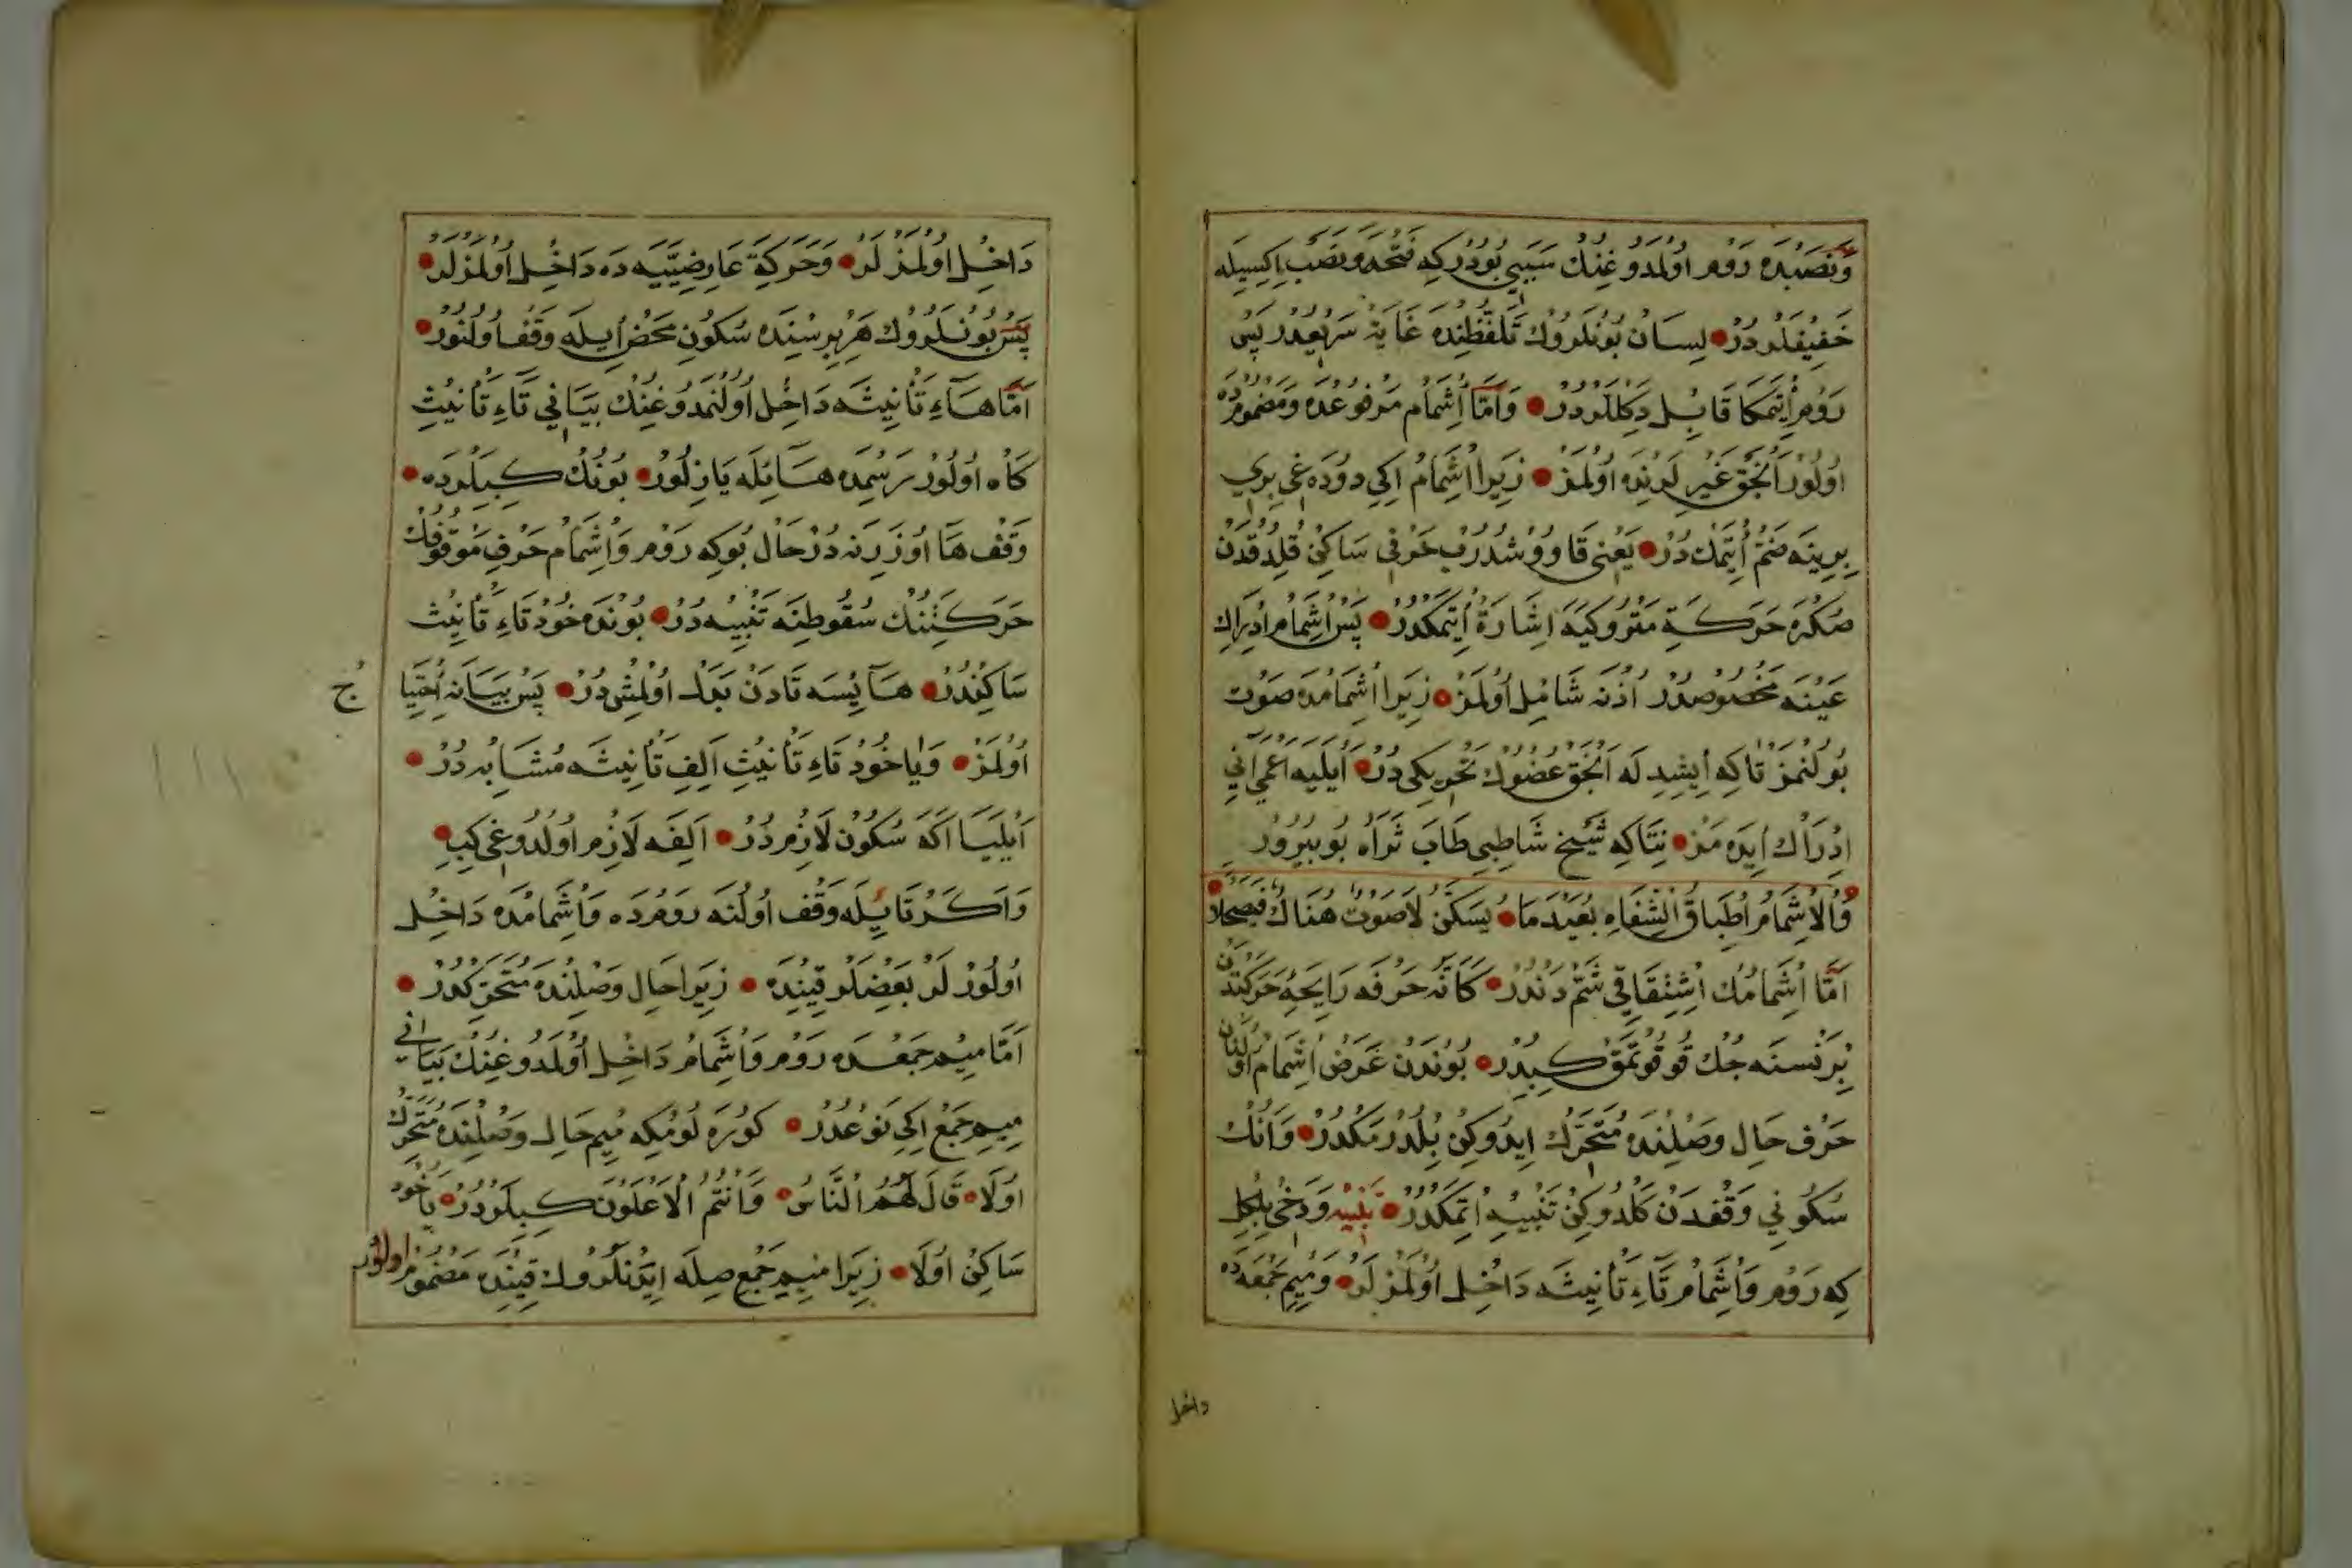 وَنَصْبْدَه رَوْم اُولْمَدُوغِنُكْ سَبَبِي بُودُرْكِه فَتْحَه وَنَصْب اِكِيسِيلَه
خَفِيفْلَرْدُرْ لِسَانْ بُونْلَرُوكْ تَلَفُّظِنْدَه غَايَة سَرِيعْدُرْ پَسْ
رَوْم اِيتْمَكَا قَابِل دَكِلْلَرْدُرْ وَاَمَّا اِشْمَامْ مَرْفُوعْدَه وَمَضْمُومْدَه
اُولُورْ اَنْجَقْ غَيْرِلَرِنْدَه اُولْمَزْ زِيرَا اِشْمَامْ اِكِي دُودَاغِي بِرِي
بِرِينَه ضَمّ اِيتْمَكْدُرْ يَعْنِي قَاوُوشْدُرُبْ حَرْفِي سَاكِنْ قِلْدُقْدَنْ
صُكْرَه حَرَكَةِ مَتْرُوكَيَه اِشَارَة اِيتْمَكْدُرْ پَسْ اِشْمَام اِدْرَاكِ
عَيْنَه مَخْصُوصْدُرْ اُذُنَه شَامِل اُولْمَزْ زِيرَا اِشْمَامْدَه صَوْت
بُولُنْمَزْ تَاكِه اِيشِيدِلَه اَنْجَقْ عُضْوُكْ تَحْرِيكِي دُرْ اَيْلَيَه اَعْمَى اَنِي
اِدْرَاك اِيدَه مَزْ نِتَاكِه شَيْخ شَاطِبِي طَابَ ثَرَاهُ بُويُرُورْ
وَالْاِشْمَامُ اِطْبَاقُ الشِّفَاهِ بُعَيْدَ مَا يُسَكَّنُ لَا صَوْتٌ هُنَاكَ فَيَصْحَلَا
اَمَّا اِشْمَامُكْ اِشْتِقَاقِي شَمّ دَنْدُرْ كَاَنَّه حَرْفَه رَايِحَۀ حَرَكَتْدَنْ
بِرْ نَسْنَه جُكْ قُوقُوتْمَقْ كِبِدُرْ بُونْدَنْ غَرَضْ اِشْمَامْ اُولُنَانْ
حَرْف حَالِ وَصْلِنْدَه مُتَحَرِّكْ اِيدُوكِنْ بِلْدُرْمَكْدُرْ وَاَنُكْ
سُكُونِي وَقْفْدَنْ كَلْدُوكِنْ تَنْبِيه اِتْمَكْدُرْ تَنْبِيه وَدَخِي بِلْكِلْ
كِه رَوْم وَاِشْمَامْ تَاءِ تَأْنِيثَه دَاخِل اُولْمَزْلَرْ وَمِيمِ جَمْعَه دَه
داخل
دَاخِل اُولْمَزْلَرْ وَحَرَكَةِ عَارِضِيَّيَه دَه دَاخِل اُولْمَزْلَرْ
پَسْ بُونْلَرُوكْ هَرْ بِرِسْنِدَه سُكُونِ مَحْض اِيلَه وَقْف اُولُنُورْ
اَمَّا هَاءِ تَأْنِيثَه دَاخِل اُولُنْمَدُوغِنُكْ بَيَانِي تَاءِ تَأْنِيثِ
كَاه اُولُورْ رَسْمْدَه هَائِلَه يَازِلُورْ بُونُكْ كِبِلَرْدَه
وَقْف هَا اُوزَرِنَه دُرْ حَال بُوكِه رَوْم وَاِشْمَام حَرْفِ مَوْقُوفُكْ
حَرَكَتِنُكْ سُقُوطِنَه تَنْبِيه دُرْ بُونْدَه خُود تَاءِ تَأْنِيث
سَاكِنْدُرْ هَا يِسَه تَادَنْ بَدَل اُولْمِشْدُرْ پَسْ بَيَانَه اِحْتِيَا
ج
اُولْمَزْ وَيَا خُود تَاءِ تَأْنِيث اَلِفِ تَأْنِيثَه مُشَابِه دُرْ
اَيْلَيْسَا اَكَه سُكُون لَازِم دُرْ اَلِفَه لَازِم اُولْدُوغِي كِبِي
وَاَكَرْ تَا يِيلَه وَقْف اُولُنَه رَوْمْدَه وَاِشْمَامْدَه دَاخِل
اُولُورْلَرْ بَعْضِلَرْ قَتِنْدَه زِيرَا حَالِ وَصْلِنْدَه مُتَحَرِّكْدُرْ
اَمَّا مِيمِ جَمْعْدَه رَوْم وَاِشْمَامْ دَاخِل اُولْمَدُوغِنُكْ بَيَانِي
مِيمِ جَمْع اِكِي نَوْعْدُرْ كُورَه لُومْكِه مِيم حَالِ وَصْلِنْدَه مُتَحَرِّكْ
اُولَا قَالَ لَهُمُ النَّاسُ وَاَنْتُمُ الْاَعْلَوْنَ كِبِلَرْدُرْ يَا خُود
سَاكِنْ اُولَا زِيرَا مِيمِ جَمْع صِلَه اِيدَنْلَرُوكْ قَتِنْدَه مَضْمُوم اولور